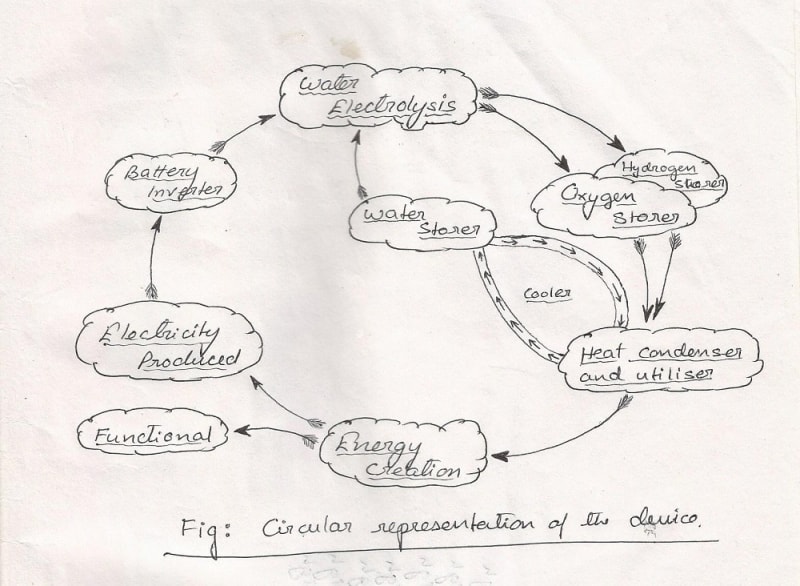 Water
Electrolysis
Battery
Inverter
Hydrogen
Storer
Oxygen
Storer
Water
Storer
Cooler
Electricity
Produced
Heat condenser
and utiliser
Functional
Energy
Creation
Fig: Circular representation of the device.